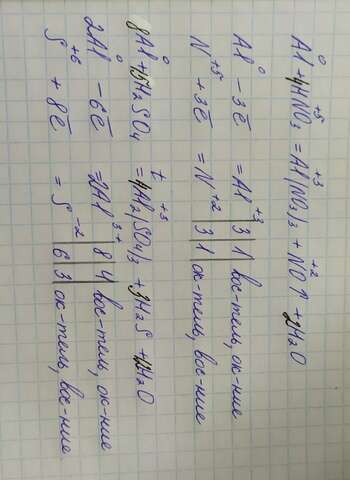 Al⁰ + 4HN⁺⁵O₃ = Al⁺³(NO₃)₃ + N⁺²O↑ + 2H₂O
Al⁰ - 3ē = Al⁺³ | 3 | 1 вос-тель, ок-ние
N⁺⁵ + 3ē = N⁺² | 3 | 1 ок-тель, вос-ние
8Al⁰ + 15H₂SO₄ =ᵗ 4Al₂⁺³(SO₄)₃ + 3H₂S + 12H₂O
2Al⁰ - 6ē = 2Al³⁺ | 8 | 4 вос-тель, ок-ние
S⁺⁶ + 8ē = S⁻² | 6 | 3 ок-тель, вос-ние